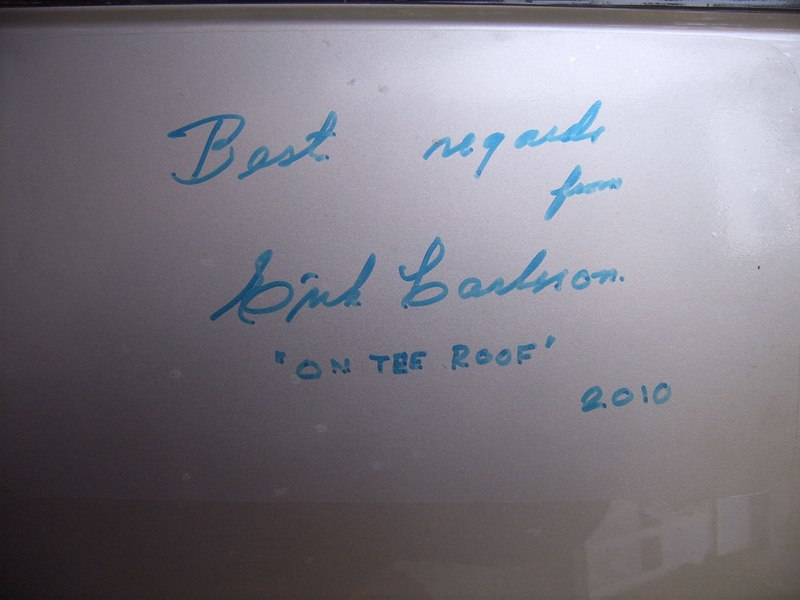 Best regards
from
Erik Carlsson.
"ON THE ROOF"
2010